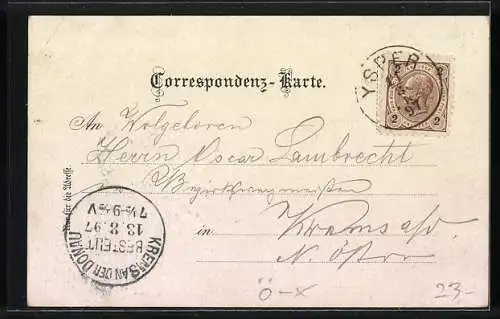 Correspondenz-Karte.
YSPER
2 2
An Wolgeboren
Herrn Oscar Lambrecht
in Krems a/D.
N. Östr.
Nur für die Adresse
KREMS AN DER DONAU
BESTELLT
13.8.97
7½-9½V
Ö-x
23-